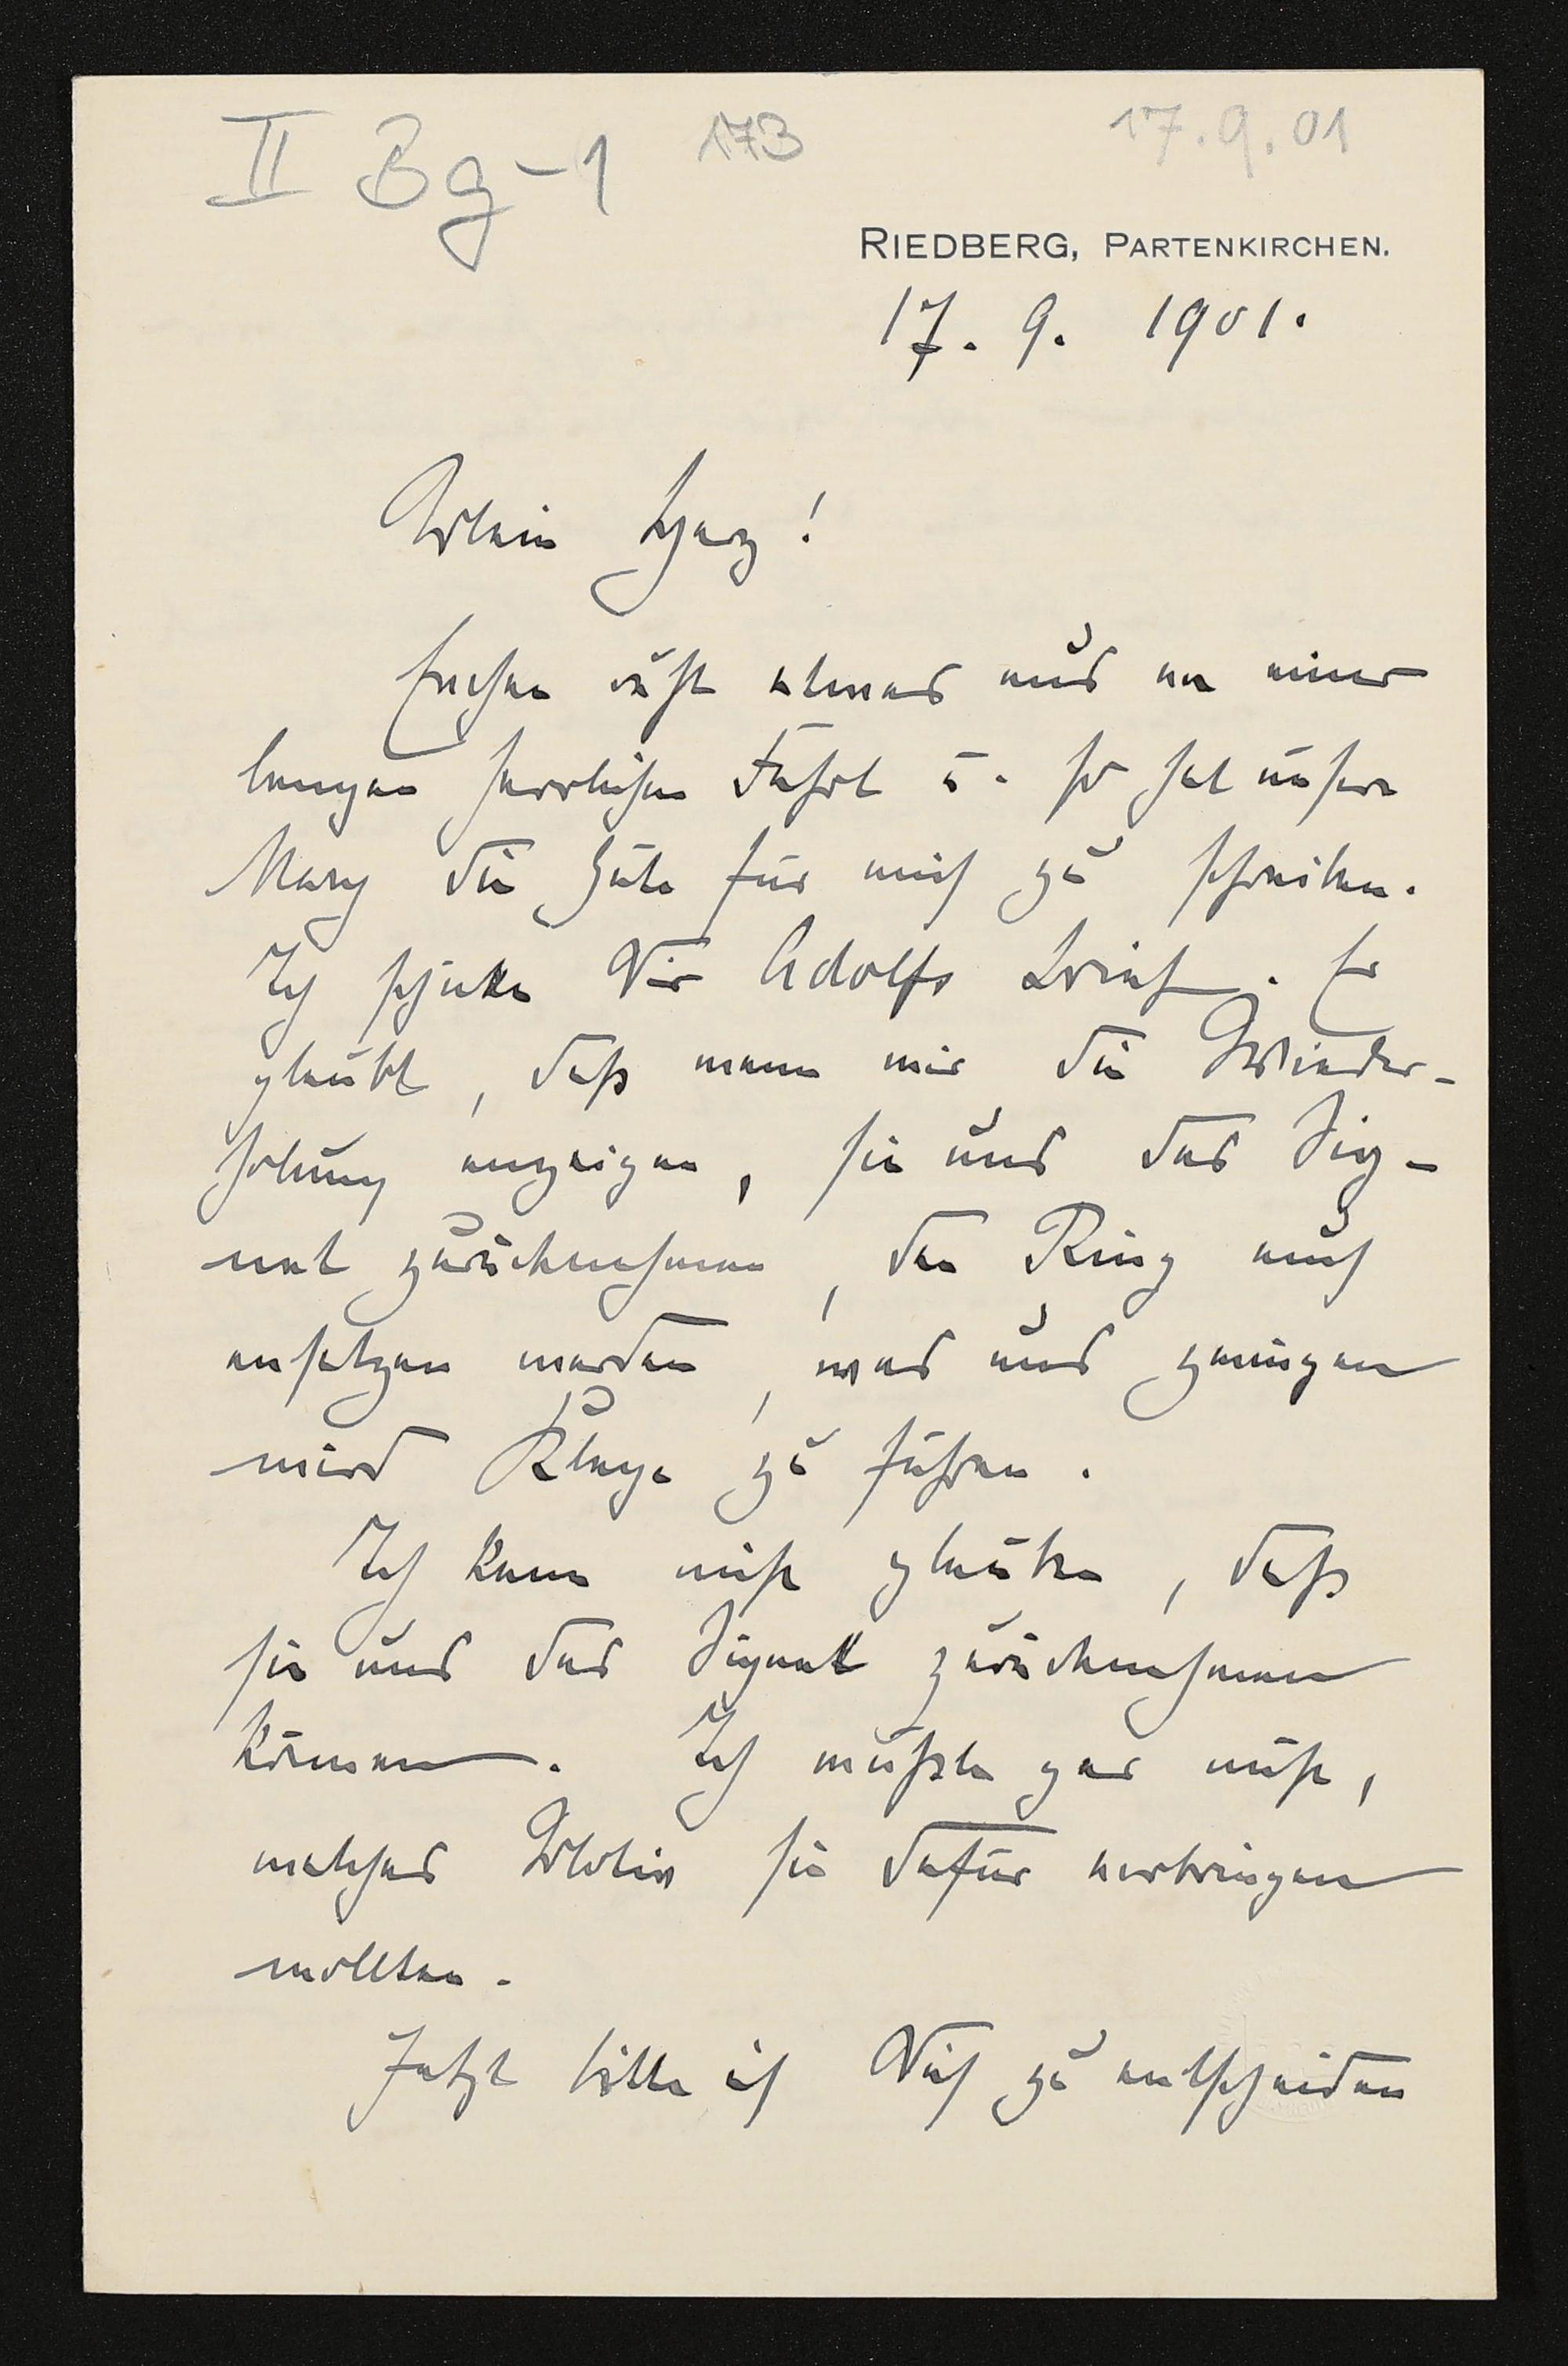 II Bg-1 173 17.9.01
RIEDBERG, PARTENKIRCHEN.
17. 9. 1901.
Mein Herz!
Erchen ruht etwas aus von einer
langen herrlichen Fahrt u. so hat unsere
Mary die Güte für mich zu schreiben.
Ich schicke Dir Adolfs Brief. Er
glaubt, dass wenn wir die Wieder-
holung anzeigen, sie uns das Sig-
nat zurücknehmen, den Ring auch
ansetzen werden, was uns zwingen
wird Klage zu führen.
Ich kann nicht glauben, dass
sie uns das Signat zurücknehmen
können. Ich wüsste gar nicht,
welches Motiv sie dafür vorbringen
wollten.
Jetzt bitte ich Dich zu entscheiden